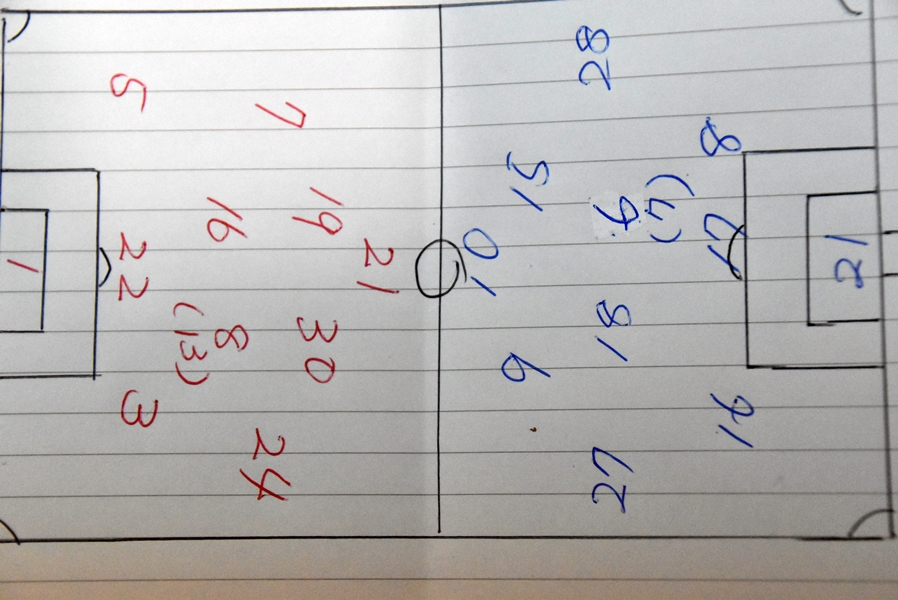 1
5
22
3
16
8
(13)
7
24
19
30
21
10
15
9
28
6
(7)
18
27
8
17
16
21